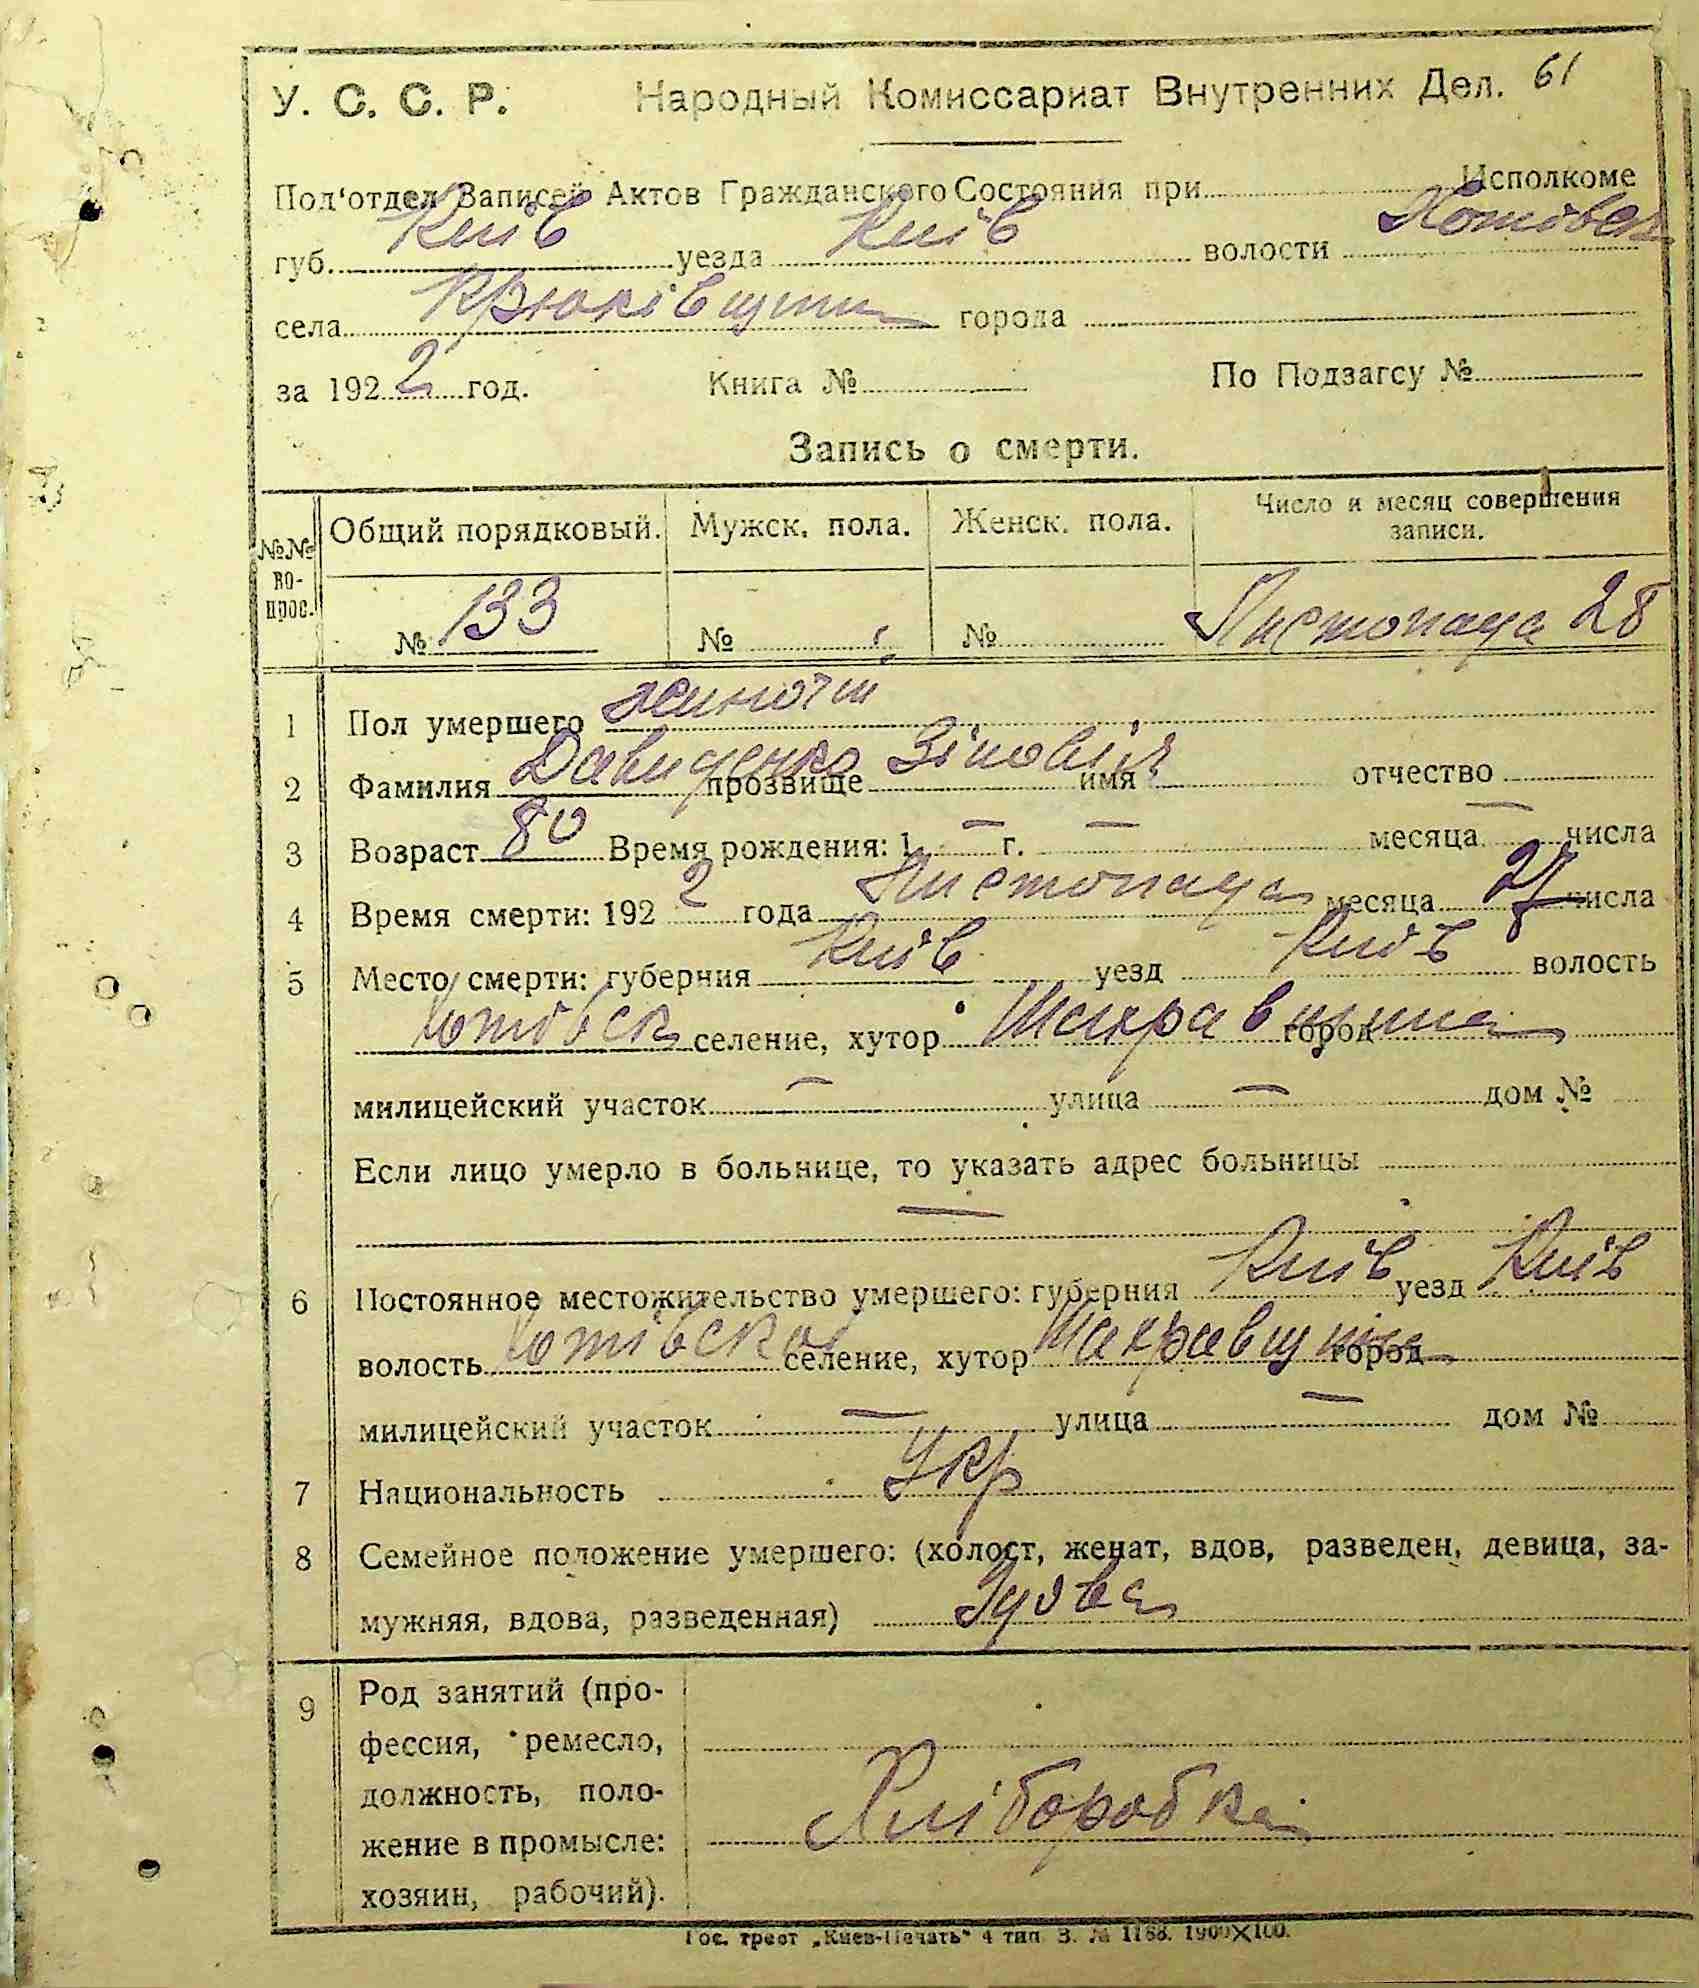 У. С. С. Р. Народный Комиссариат Внутренних Дел. 61
Под'отдел Записей Актов Гражданского Состояния при Исполкоме
губ. Київ уезда Київ волости Хотівск
села Крюківщини города
за 1922 год. Книга № По Подзагсу №
Запись о смерти.
№№ во-прос. Общий порядковый. Мужск. пола. Женск. пола. Число и месяц совершения записи.
№ 133 № № Листопада 28
1 Пол умершего жиночи
2 Фамилия Давиденко прозвище Зіновія имя отчество
3 Возраст 80 Время рождения: 1 — г. — месяца — числа
4 Время смерти: 1922 года Листопада месяца 27 числа
5 Место смерти: губерния Київ уезд Київ волость
Хотівск селение, хутор Шахравщина город
милицейский участок — улица — дом №
Если лицо умерло в больнице, то указать адрес больницы
—
6 Постоянное местожительство умершего: губерния Київ уезд Київ
волость Хотівска селение, хутор Шахравщина город
милицейский участок — улица — дом №
7 Национальность Укр
8 Семейное положение умершего: (холост, женат, вдов, разведен, девица, за-
мужняя, вдова, разведенная) Удова
9 Род занятий (про-
фессия, ремесло,
должность, поло-
жение в промысле: Хліборобка
хозяин, рабочий).
Гос. трест „Киев-Печать“ 4 тип. З. № 1188. 1900×100.